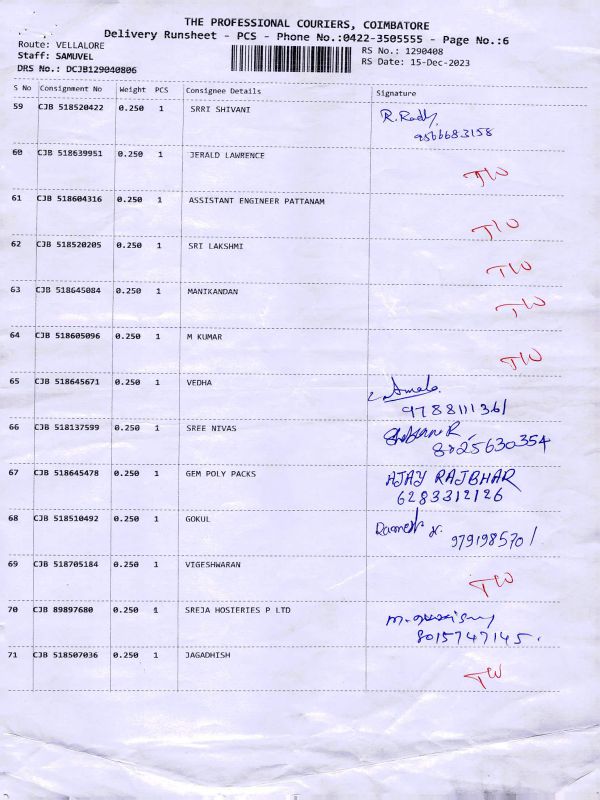 THE PROFESSIONAL COURIERS, COIMBATORE
Delivery Runsheet - PCS - Phone No.:0422-3505555 - Page No.:6
Route: VELLALORE
RS No.: 1290408
Staff: SAMUVEL
RS Date: 15-Dec-2023
DRS No.: DCJB129040806
S No Consignment No Weight PCS Consignee Details Signature
59 CJB 518520422 0.250 1 SRRI SHIVANI R.
9566683158
60 CJB 518639951 0.250 1 JERALD LAWRENCE TW
61 CJB 518604316 0.250 1 ASSISTANT ENGINEER PATTANAM TW
62 CJB 518520205 0.250 1 SRI LAKSHMI TW
63 CJB 518645084 0.250 1 MANIKANDAN TW
64 CJB 518605096 0.250 1 M KUMAR TW
65 CJB 518645671 0.250 1 VEDHA Amala
9788111361
66 CJB 518137599 0.250 1 SREE NIVAS
8825630354
67 CJB 518645478 0.250 1 GEM POLY PACKS AJAY RAJBHAR
6283312126
68 CJB 518510492 0.250 1 GOKUL Ramesh
979198570/
69 CJB 518705184 0.250 1 VIGESHWARAN TW
70 CJB 89897680 0.250 1 SREJA HOSIERIES P LTD M.
8015747145.
71 CJB 518507036 0.250 1 JAGADHISH TW